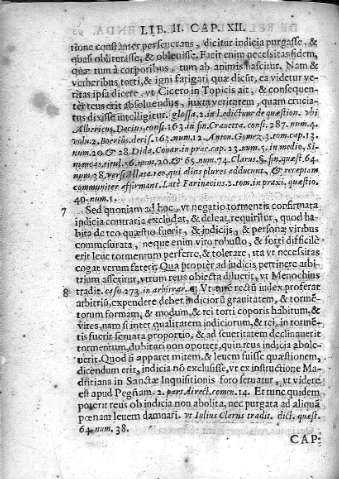 LIB. II. CAP. XII.
tione constanter perseuerans, dicitur indicia purgasse, &
quasi obliterasse, & obleuisse. Facit enim necessitas fidem,
quæ tum à corporibus, tum ab animis nascitur. Nam &
verberibus torti, & igni fatigati quæ dicunt, ea videtur ve-
ritas ipsa dicere, vt Cicero in Topicis ait, & consequen-
ter reus erit absoluendus, iuxta veritatem, quam crucia-
tus dixisse intelligitur. glossa 2. in l. edictum de quæstion. vbi
Albericus, Decius, cons. 163. in fin. Crauetta. cons. 287. num. 4.
volu. 2. Boerius. decis. 162. num. 12. Anton. Gomez. 3. tom. cap. 13.
num. 20. & 28. Dida. Couar. in prac. cap. 23. num. 5. in medio, Si-
mancas. titul. 56. num. 20. & 65. num. 74. Clarus. §. fin. quæst. 64.
num. 38. vers. Allata
communiter affirmant. Latè Farinacius. 2. tom. in praxi, quæstio.
40. num. 1.
7 Sed quoniam ad hoc, vt negatio tormentis confirmata
indicia contraria excludat, & deleat, requiritur, quod ha-
bita de reo quæstio fuerit, & indicijs, & personæ viribus
commesurata, neque enim viro robusto, & forti difficile
erit leue tormentum perferre, & tolerare, ita vt necessitas
cogat verum fateri. Qua propter ad iudicis pertinere arbi-
trium asserunt, vtrum reus obiecta diluerit, vt Menochius
8 tradit. casu 273. in arbitrar. ¶. Vt autem rectū index proferat
arbitriū, expendere debet indiciorū grauitatem, & tormē-
torum formam, & modum, & rei torti corporis habitum, &
vires, nam si inter qualitatem indiciorum, & rei, in tormē-
tis fuerit seruata proportio, & ad seueritatem declinauerit
tormentum, dubitari non oportet, quin reus indicia abole-
uerit. Quod si apparet mitem, & leuem fuisse quæstionem,
dicendum erit, indicia nō exclusisse, vt ex instructione Ma-
dritiana in Sanctæ Inquisitionis foro seruatur, vt videre
est apud Pegñam. 2. part. direct. comen. 14. Et tunc quidem
poterit reus ob indicia non abolita, nec purgata ad aliquā
pœnam leuem damnari. vt Iulius Clarus tradit. dict. quæst.
64. num. 38.
CAP.